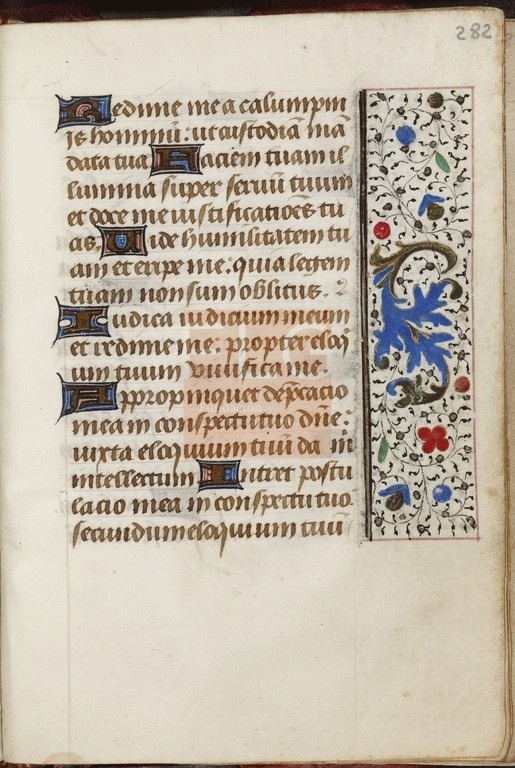 282
Redime me a calumpni
is hominū: ut custodiā mā
data tua. Faciem tuam il
lumina super servū tuum
et doce me iustificatiōes tu
as. Vide humilitatem tu
am et eripe me: quia legem
tuam non sum oblitus.
Iudica iudicium meum
et redime me: propter eloq̄
um tuum vivifica me.
Appropinquet dep̄catio
mea in conspectu tuo dñe:
iuxta eloquium tuū da m̄
intellectum. Intret postu
latio mea in conspectu tuo:
secundum eloquium tuū